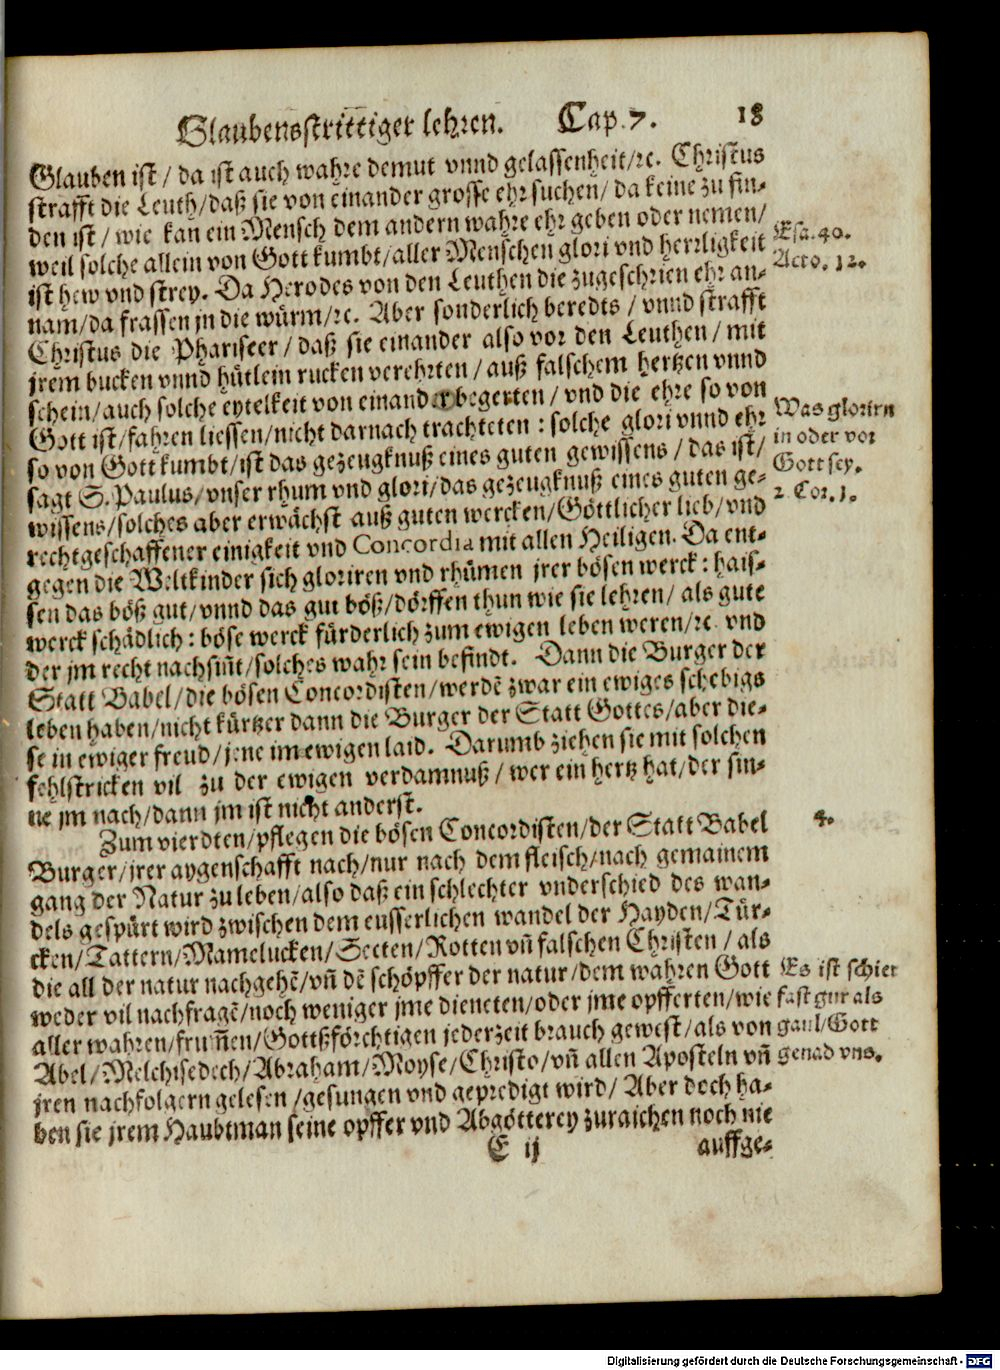 Glaubensstrittiger lehren. Cap. 7. 18
Glauben ist / da ist auch wahre demut vnnd gelassenheit/ꝛc. Christus
strafft die Leuth/daß sie von einander grosse ehr suchen/ da keine zu fin-
den ist / wie kan ein Mensch dem andern wahre ehr geben oder nemen/
weil solche allein von Gott kumbt/aller Menschen glori vnd herrligkeit
ist hew vnd strey. Da Herodes von den Leuthen die zugeschrien ehr an-
nam/da frassen jn die würm/ꝛc. Aber sonderlich beredts / vnnd strafft
Christus die Phariseer / daß sie einander also vor den Leuthen / mit
jrem bucken vnnd hütlein rucken verehrten / auß falschem hertzen vnnd
schein/auch solche eytelkeit von einander begerten / vnd die ehre so von
Gott ist/fahren liessen/nicht darnach trachteten : solche glori vnnd ehr
so von Gott kumbt/ist das gezeugknuß eines guten gewissens / das ist/
sagt S. Paulus/vnser rhum vnd glori/das gezeugknuß eines guten ge-
wissens/solches aber erwächst auß guten wercken/Göttlicher lieb/vnd
rechtgeschaffener einigkeit vnd Concordia mit allen Heiligen. Da ent-
gegen die Weltkinder sich gloriren vnd rhümen jrer bösen werck : hais-
sen das böß gut/vnnd das gut böß/dörffen thun wie sie lehren/ als gute
werck schädlich : böse werck fürderlich zum ewigen leben weren/ꝛc. vnd
der jm recht nachsiñt/solches wahr sein befindt. Dann die Burger der
Statt Babel/die bösen Concordisten/werdẽ zwar ein ewiges schebigs
leben haben/nicht kürtzer dann die Burger der Statt Gottes/aber die-
se in ewiger freud/jene im ewigen laid. Darumb ziehen sie mit solchen
fehlstricken vil zu der ewigen verdamnuß / wer ein hertz hat/der sin-
ne jm nach/dann jm ist nicht anderst.
Zum vierdten/pflegen die bösen Concordisten/der Statt Babel
Burger/jrer aygenschafft nach/nur nach dem fleisch/nach gemainem
gang der Natur zu leben/also daß ein schlechter vnderschied des wan-
dels gespürt wird zwischen dem eusserlichen wandel der Hayden/Tür-
cken/Tattern/Mamelucken/Secten/Rotten vñ falschen Christen / als
die all der natur nachgehẽ/vñ dẽ schöpffer der natur/dem wahren Gott
weder vil nachfragẽ/noch weniger jme dieneten/oder jme opfferten/wie
aller wahren/frum̃en/Gottßförchtigen jederzeit brauch gewest/als von
Abel/Melchisedech/Abraham/Moyse/Christo/vñ allen Aposteln vñ
jren nachfolgern gelesen /gesungen vnd gepredigt wird/ Aber doch ha-
ben sie jrem Haubtman seine opffer vnd Abgötterey zuraichen noch nie
E ij auffge-
Esa. 40.
Acto. 12.
Was glorirn
in oder vor
Gott sey.
2. Cor. 1.
4.
Es ist schier
fast gur als
gaul/Gott
genad vns.
Digitalisierung gefördert durch die Deutsche Forschungsgemeinschaft - DFG